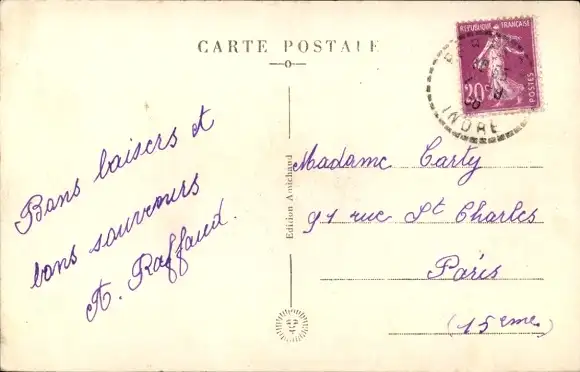 CARTE POSTALE
REPUBLIQUE FRANÇAISE
20c
POSTES
INDRE
Bons baisers et
bons souvenirs
A. Raffaud.
Edition Amichaud
Madame Carty
91 rue St Charles
Paris
(15eme)